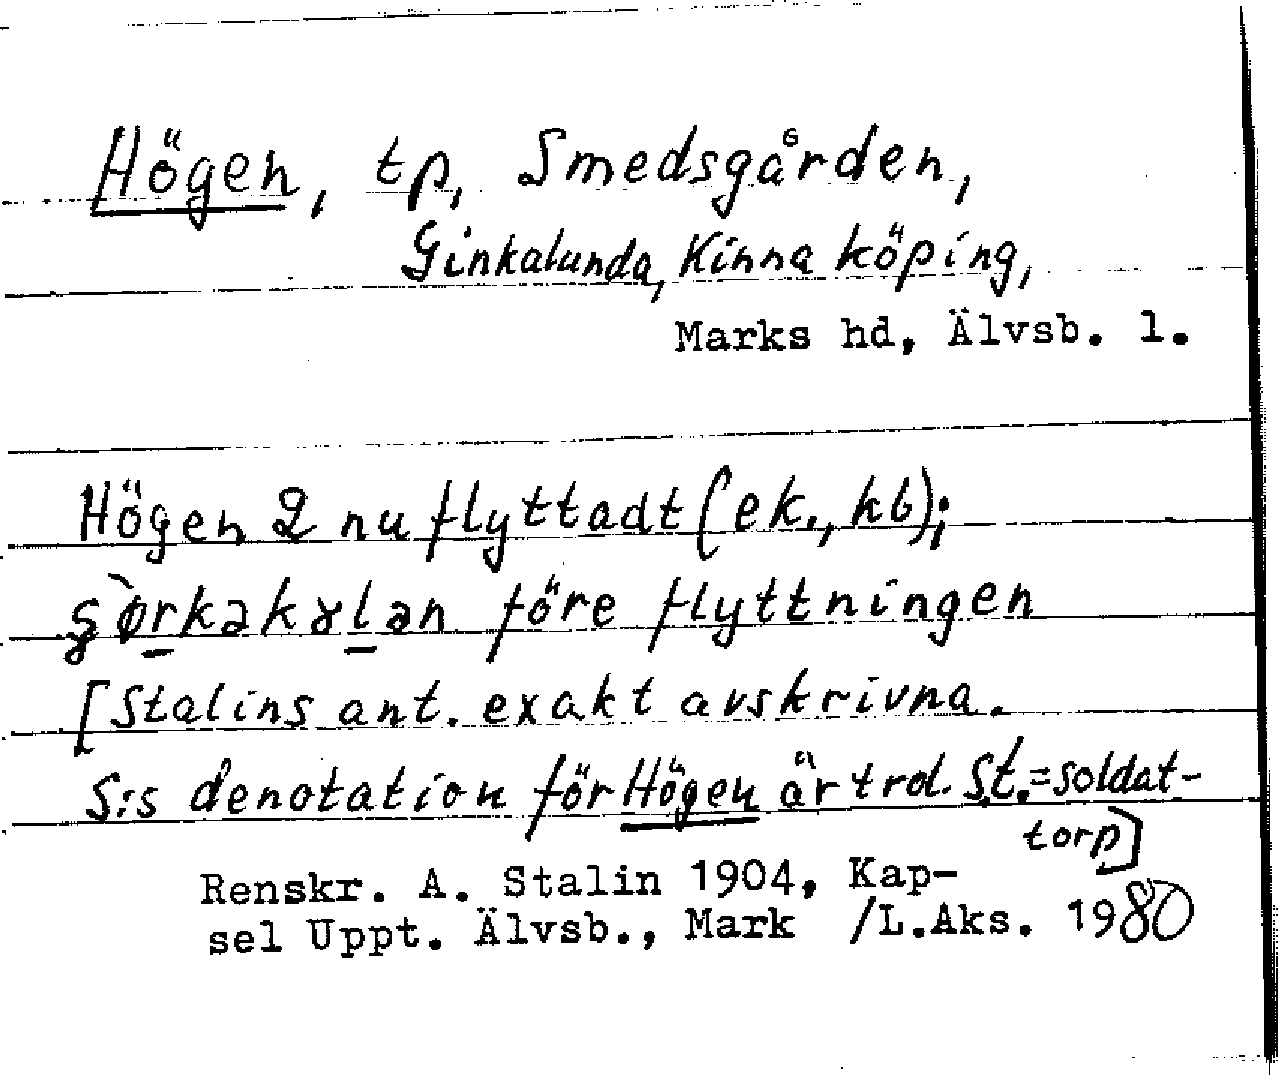 Högen, tp, Smedsgården,
Ginkalunda, Kinna köping,
Marks hd, Älvsb. l.
Högen 2 nu flyttadt (ek., kb);
före flyttningen
[Stalins ant. exakt avskrivna.
S:s denotation för Högen är trol. St.=soldat-
torp]
Renskr. A. Stalin 1904, Kap-
sel Uppt. Älvsb., Mark /L.Aks. 1980